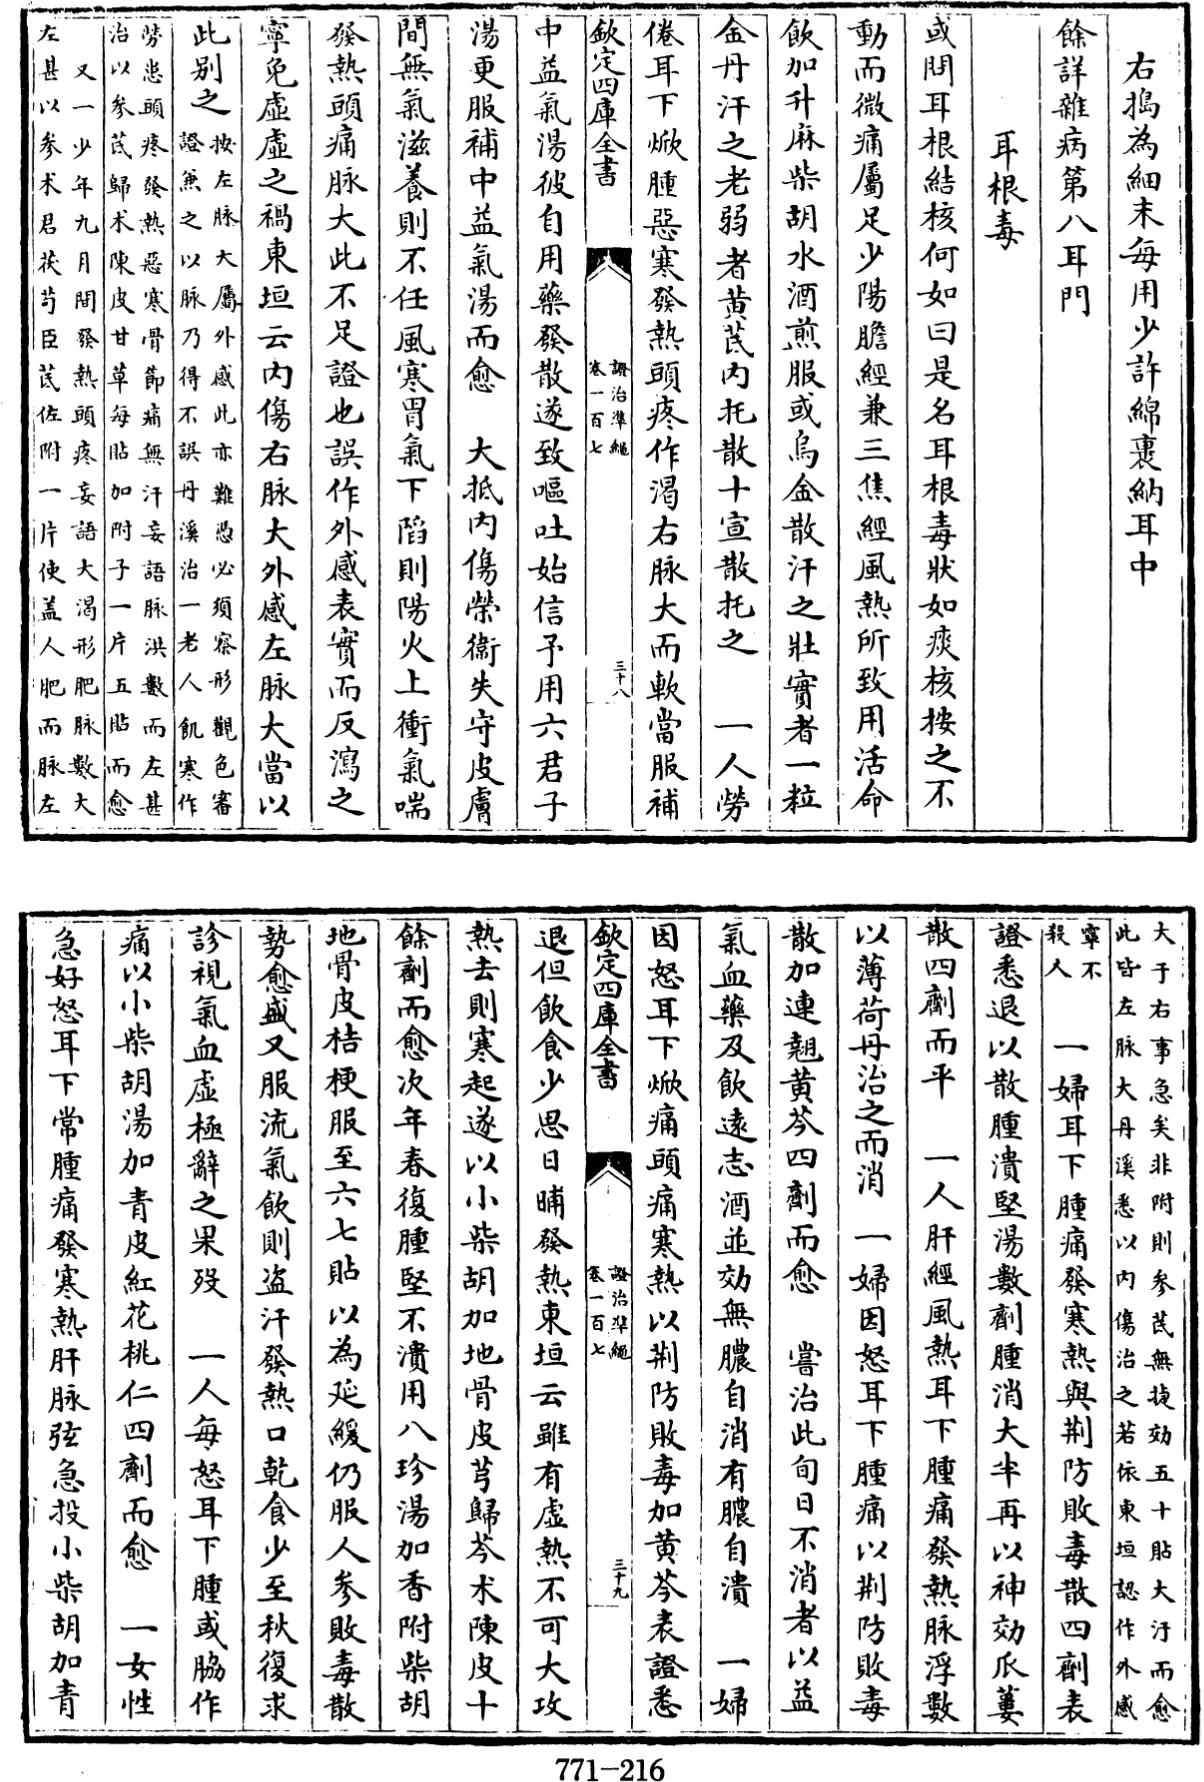 右搗為細末每用少許綿裹納耳中
餘詳雜病第八耳門
耳根毒
或問耳根結核何如曰是名耳根毒狀如痰核按之不
動而微痛屬足少陽膽經兼三焦經風熱所致用活命
飲加升麻柴胡水酒煎服或烏金散汗之壯實者一粒
金丹汗之老弱者黄芪内托散十宣散托之 一人勞
倦耳下焮腫惡寒發熱頭疼作渴右脉大而軟當服補
欽定四庫全書
證治準繩
卷一百七
三十八
中益氣湯彼自用藥發散遂致嘔吐始信予用六君子
湯更服補中益氣湯而愈 大抵内傷榮衞失守皮膚
間無氣滋養則不任風寒胃氣下陷則陽火上衝氣喘
發熱頭痛脉大此不足證也誤作外感表實而反瀉之
寧免虛虛之禍東垣云内傷右脉大外感左脉大當以
此别之
按左脉大屬外感此亦難憑必須察形觀色審
證兼之以脉乃得不誤丹溪治一老人飢寒作
勞患頭疼發熱惡寒骨節痛無汗妄語脉洪數而左甚
治以參芪歸术陳皮甘草每貼加附子一片五貼而愈
又一少年九月間發熱頭疼妄語大渴形肥脉數大
左甚以參术君茯芍臣芪佐附一片使盖人肥而脉左
大于右事急矣非附則參芪無捷効五十貼大汗而愈
此皆左脉大丹溪悉以内傷治之若依東垣認作外感
寧不
殺人
一婦耳下腫痛發寒熱與荆防敗毒散四劑表
證悉退以散腫潰堅湯數劑腫消大半再以神効瓜蔞
散四劑而平 一人肝經風熱耳下腫痛發熱脉浮數
以薄荷丹治之而消 一婦因怒耳下腫痛以荆防敗毒
散加連翹黄芩四劑而愈 嘗治此旬日不消者以益
氣血藥及飲遠志酒並効無膿自消有膿自潰 一婦
因怒耳下焮痛頭痛寒熱以荆防敗毒加黄芩表證悉
欽定四庫全書
證治準繩
卷一百七
三十九
退但飲食少思日晡發熱東垣云雖有虛熱不可大攻
熱去則寒起遂以小柴胡加地骨皮芎歸芩术陳皮十
餘劑而愈次年春復腫堅不潰用八珍湯加香附柴胡
地骨皮桔梗服至六七貼以為延緩仍服人參敗毒散
勢愈盛又服流氣飲則盗汗發熱口乾食少至秋復求
診視氣血虛極辭之果殁 一人每怒耳下腫或脇作
痛以小柴胡湯加青皮紅花桃仁四劑而愈 一女性
急好怒耳下常腫痛發寒熱肝脉弦急投小柴胡加青
771-216